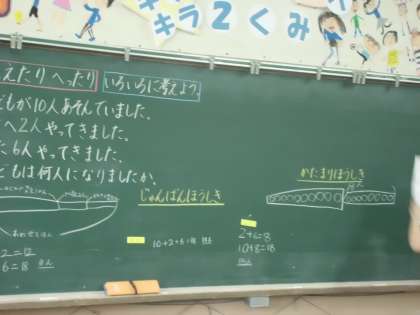 キラ2くみ
えたりへったり いろいろに考えよう
どもが10人あそんでいました。
へ2人やってきました。
た6人やってきました。
どもは何人になりましたか。
じゅんばんほうしき
かたまりほうしき
2=12
6=18
10+2+6=18
2+6=8
10+8=18